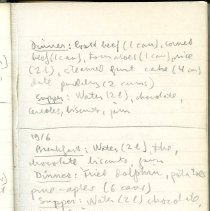 Dinner: Roast beef (1 can), corned
beef (1 can), tomatoes (1 can), rice
(2 l), steamed fruit cake (4 oz)
date pudding (2 cans)
Supper: Water (2 l), chocolate,
biscuits, jam
19/6
Breakfast: Water (2 l), tea,
chocolate biscuits, jam
Dinner: Fried dolphin, potatoes
pine-apples (6 cans)
Supper: Water (2 l) chocolate,